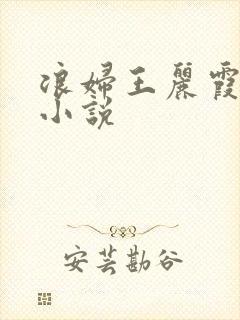 浪婦王麗霞
小說
安芸勘谷